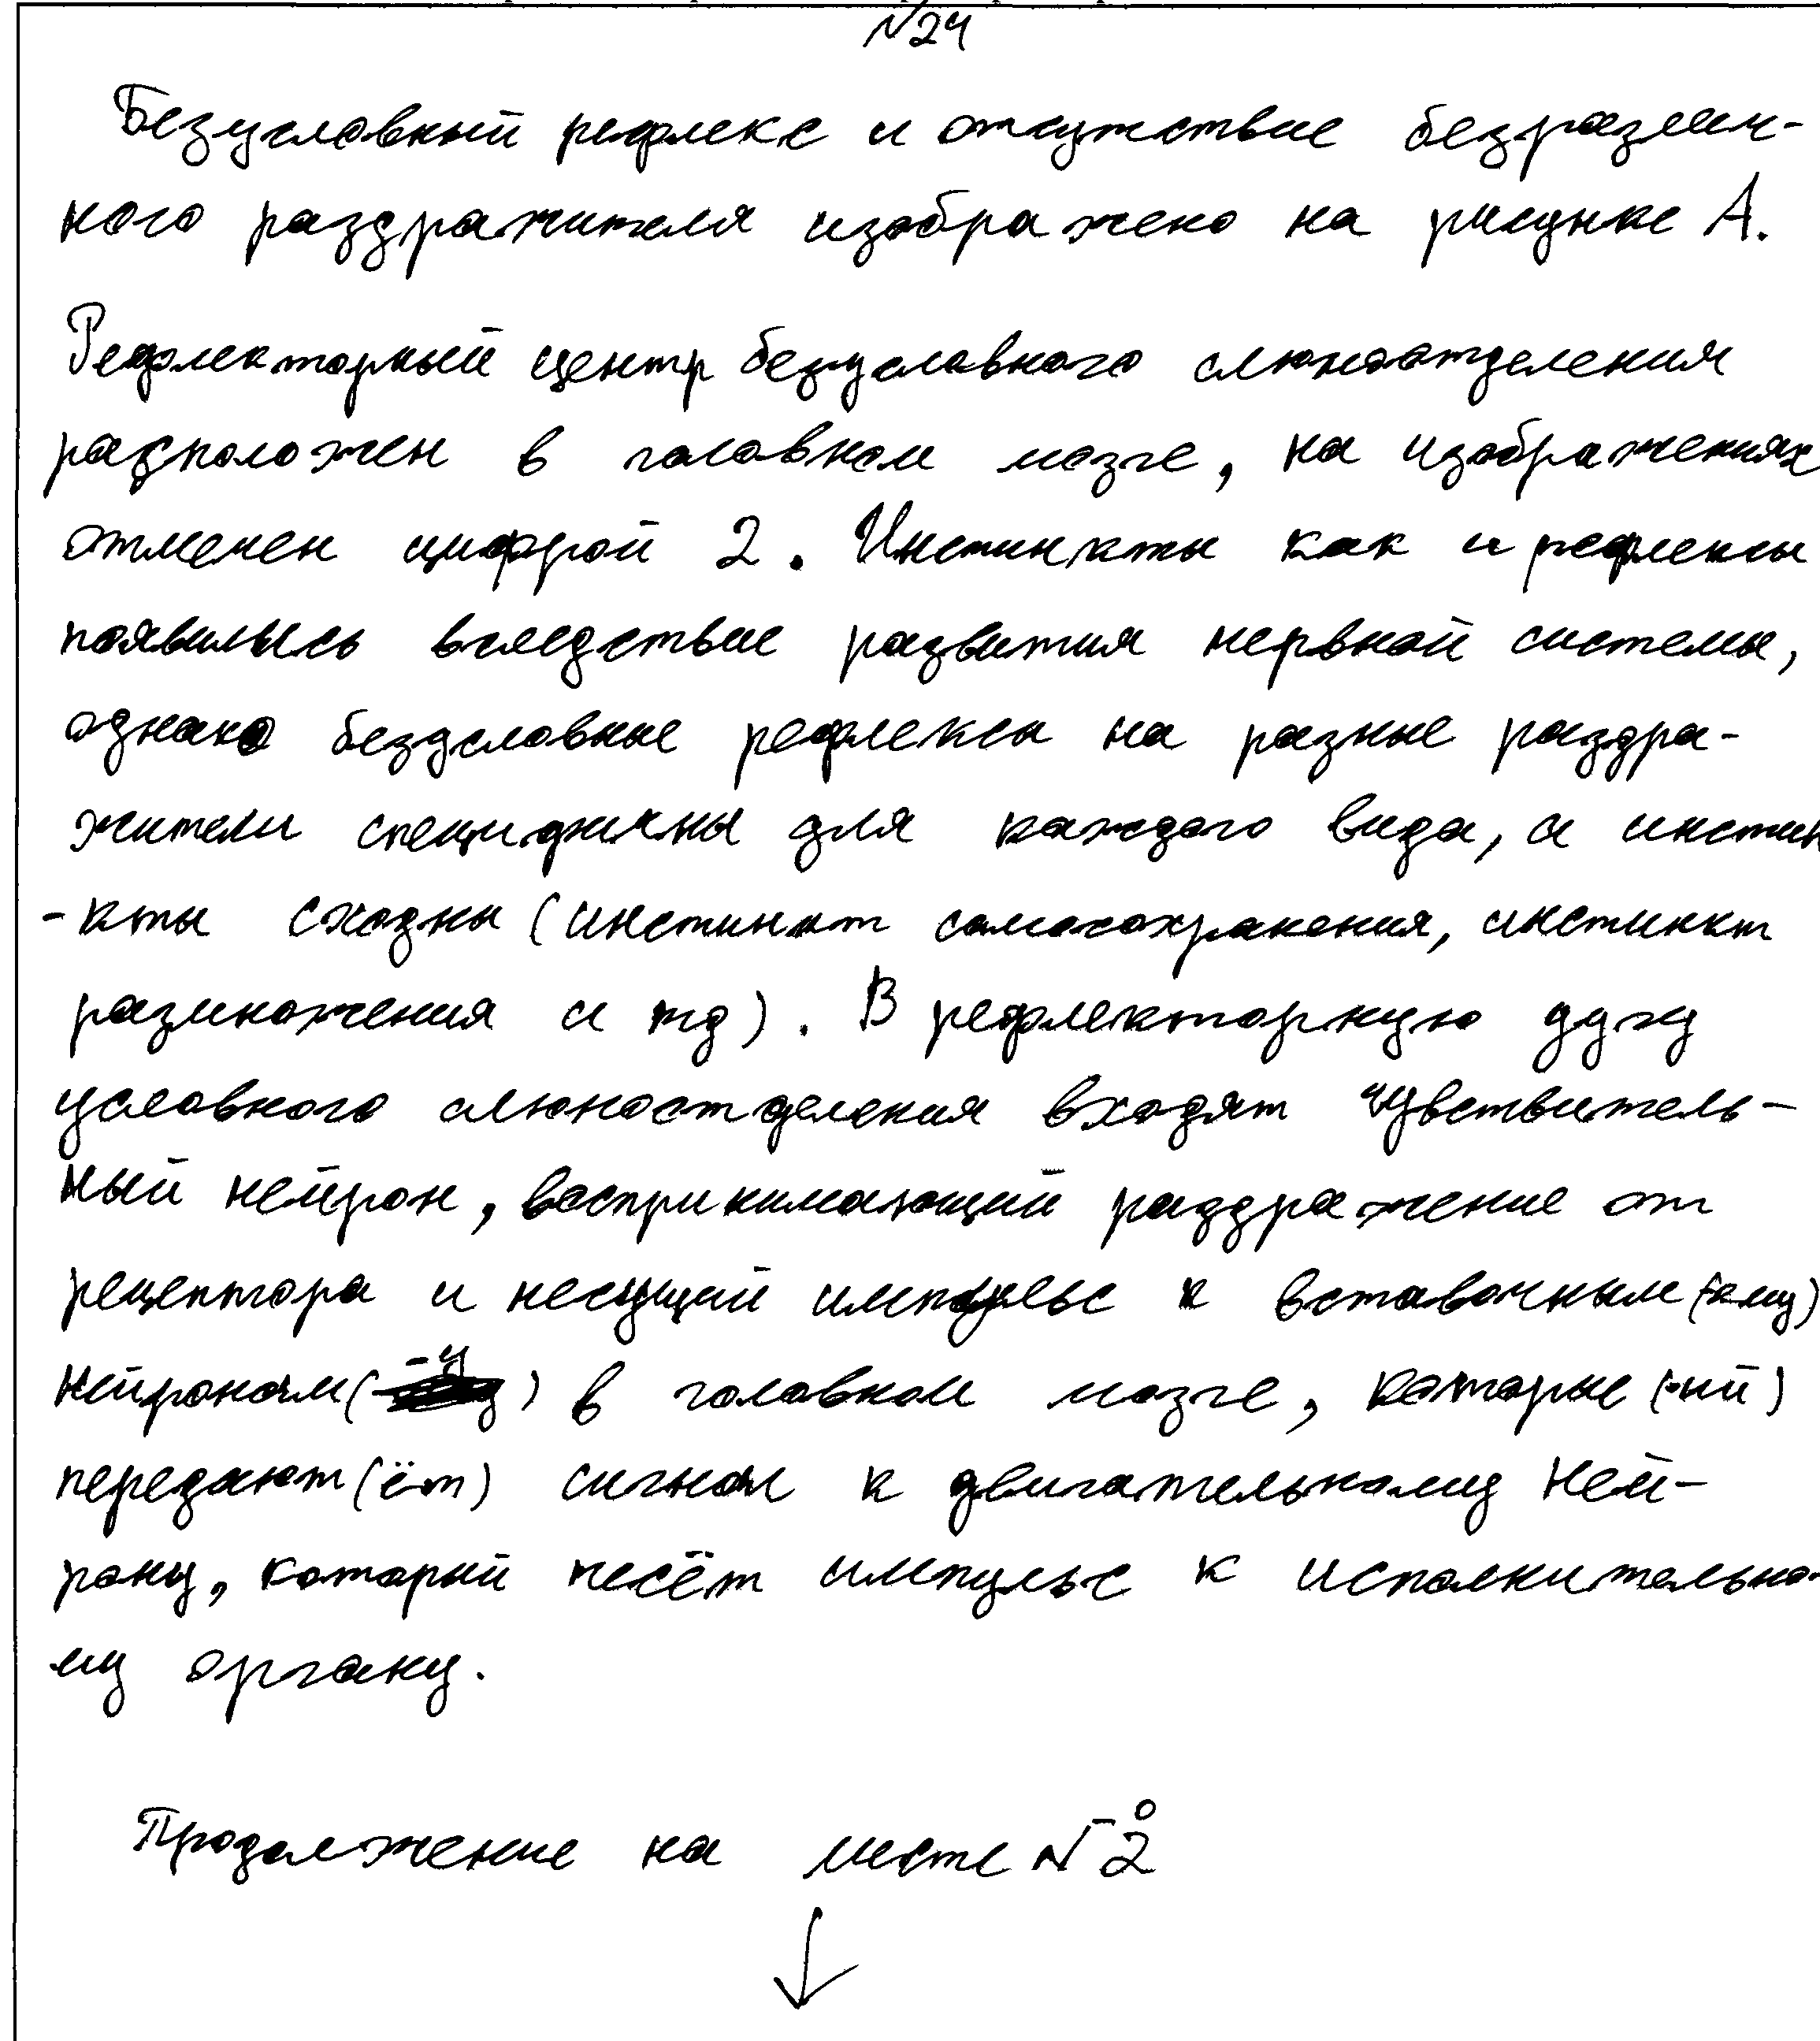 №24
Безусловный рефлекс и отсутствие безразлич-
ного раздражителя изображено на рисунке А.
Рефлекторный центр безусловного слюноотделения
расположен в головном мозге, на изображениях
отмечен цифрой 2. Инстинкты как и рефлексы
появились вследствие развития нервной системы,
однако безусловные рефлексы на разные раздра-
жители специфичны для каждого вида, а инстин
-кты сходны (инстинкт самосохранения, инстинкт
размножения и тд). В рефлекторную дугу
условного слюноотделения входят чувствитель-
ный нейрон, воспринимающий раздражение от
рецептора и несущий импульс к вставочным(-ому)
нейронам(-у) в головном мозге, которые (-ый)
передают(ёт) сигнал к двигательному ней-
рону, который несёт импульс к исполнительно-
му органу.
Продолжение на листе №2